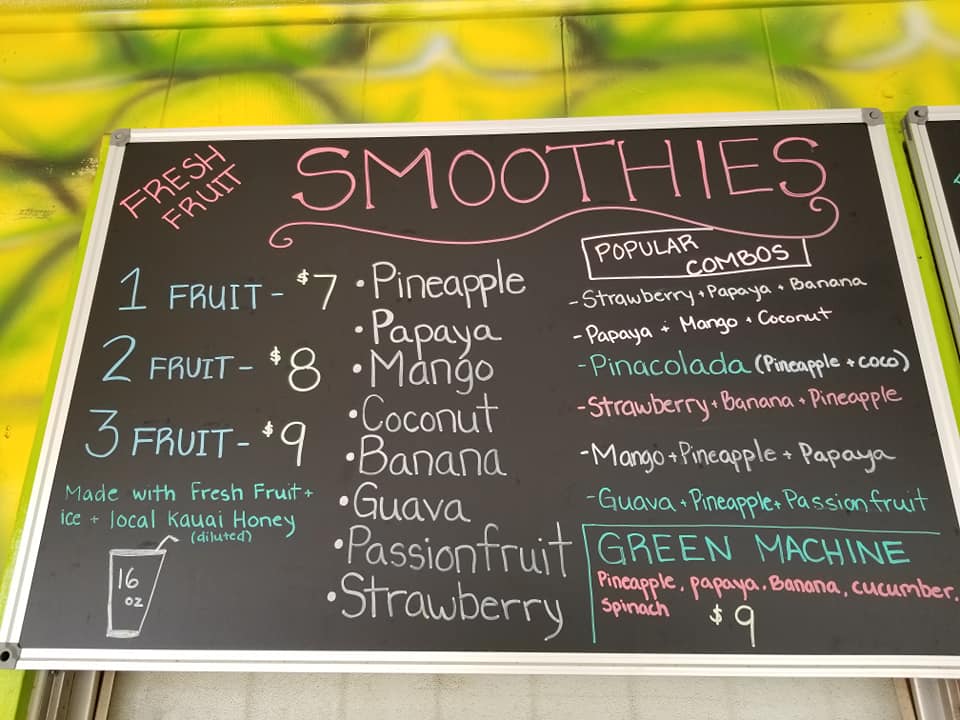 FRESH
FRUIT
SMOOTHIES
1 FRUIT - $7
2 FRUIT - $8
3 FRUIT - $9
Made with Fresh Fruit +
ice + local Kauai Honey
(diluted)
16
oz
• Pineapple
• Papaya
• Mango
• Coconut
• Banana
• Guava
• Passionfruit
• Strawberry
POPULAR
COMBOS
- Strawberry + Papaya + Banana
- Papaya + Mango + Coconut
- Pinacolada (Pineapple + coco)
- Strawberry + Banana + Pineapple
- Mango + Pineapple + Papaya
- Guava + Pineapple + Passionfruit
GREEN MACHINE
Pineapple, papaya, Banana, cucumber,
Spinach
$9